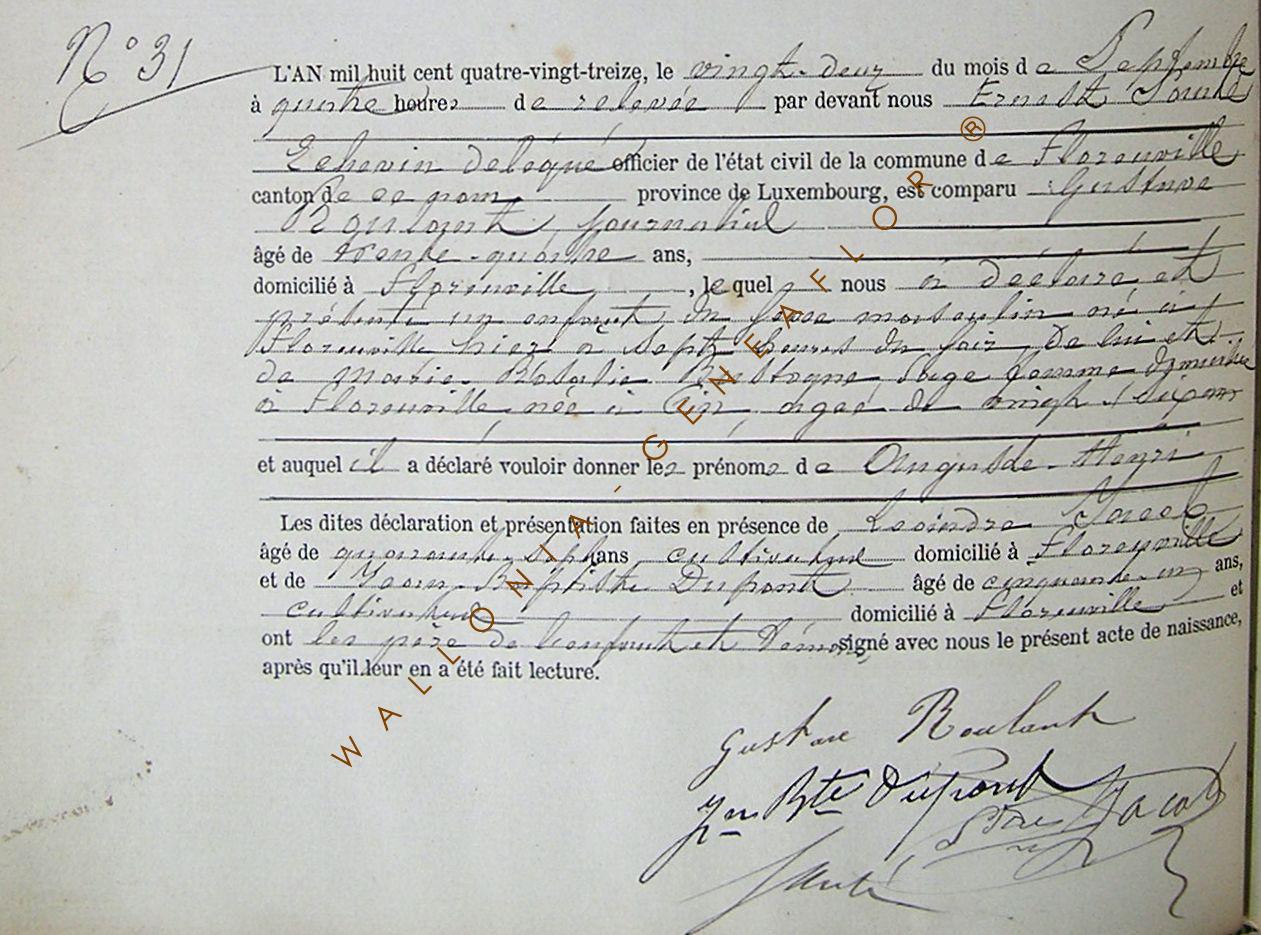 N° 31
L'AN mil huit cent quatre-vingt-treize, le vingt-deux du mois de Septembre
à quatre heures de relevée par devant nous Ernest
Echevin délégué officier de l'état civil de la commune de Florenville
canton de ce nom province de Luxembourg, est comparu Gustave
Roulant, journalier
âgé de trente-quatre ans,
domicilié à Florenville, lequel nous a déclaré et
présenté un enfant du sexe masculin né à
Florenville hier à sept heures du soir, de lui et
de Marie Rosalie Bretagne sage femme domiciliée
à Florenville née à Izel, âgée de vingt
et auquel il a déclaré vouloir donner les prénoms de Auguste-Henri
Les dites déclaration et présentation faites en présence de Jacob
âgé de quarante-sept ans cultivateur domicilié à Florenville
et de Jean-Baptiste Dupont âgé de cinquante-un ans,
cultivateur domicilié à Florenville et
ont les père de l'enfant et témoins signé avec nous le présent acte de naissance,
après qu'il leur en a été fait lecture.
Gustave Roulant
Jn Bte Dupont
Jacob
WALLONIA-GENEAFLOR ®